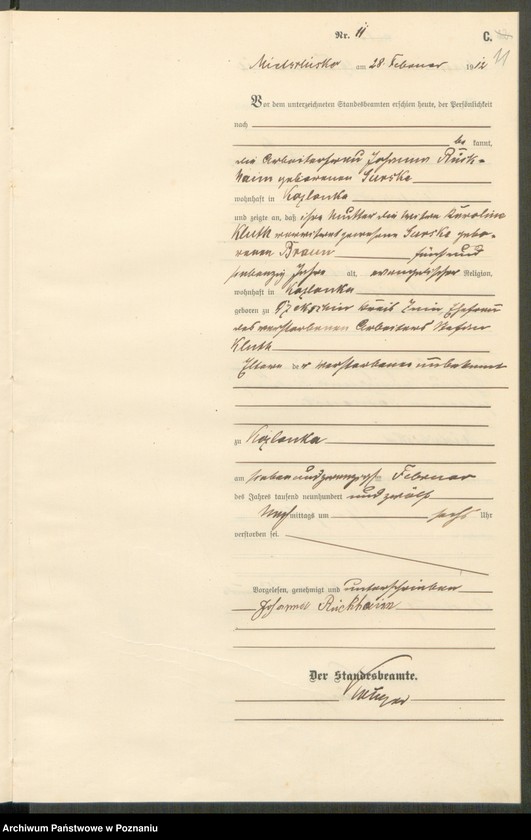 Nr. 11
C.
11
am 28. Februar 1912
Vor dem unterzeichneten Standesbeamten erschien heute, der Persönlichkeit
nach
be kannt,
die Arbeiterfrau Johanna Rück-
haim geborenen Surske
wohnhaft in Kozlanka
und zeigte an, daß ihre Mutter die Witwe Karolina
Kluth verwitwet gewesene Surske gebo-
rene Braun fünfund
siebenzig Jahre alt, evangelischer Religion,
wohnhaft in Kozlanka
geboren zu Kreis Znin Ehefrau
des verstorbenen Arbeiters
Kluth
Eltern der Verstorbenen unbekannt
zu Kozlanka
am siebenundzwanzigsten Februar
des Jahres tausend neunhundert und zwölf
Nachmittags um sechs Uhr
verstorben sei.
Vorgelesen, genehmigt und unterschrieben
Johanna Rückhaim
Der Standesbeamte.
Archiwum Państwowe w Poznaniu